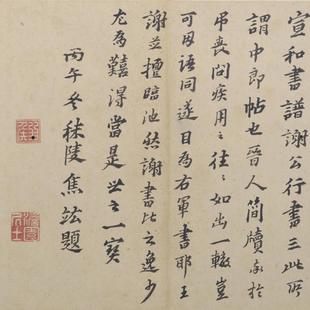 宣和書譜謝公行書三此所
謂中郎帖也晉人簡牘交於
弔喪問疾用之往〻如出一轍豈
可因語同遂目為右軍書耶王
謝並擅臨池然謝書比之逸少
尤為難得當是世之一寶
丙午冬秣陵焦竑題